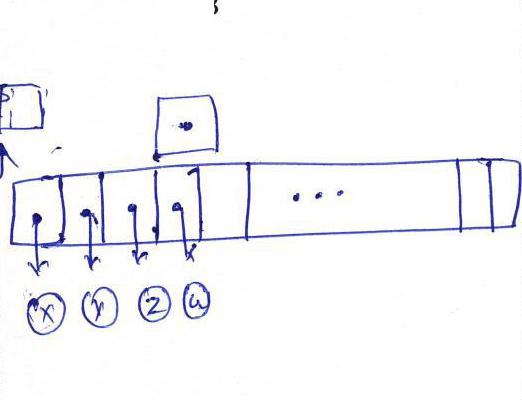 ...
X Y Z W